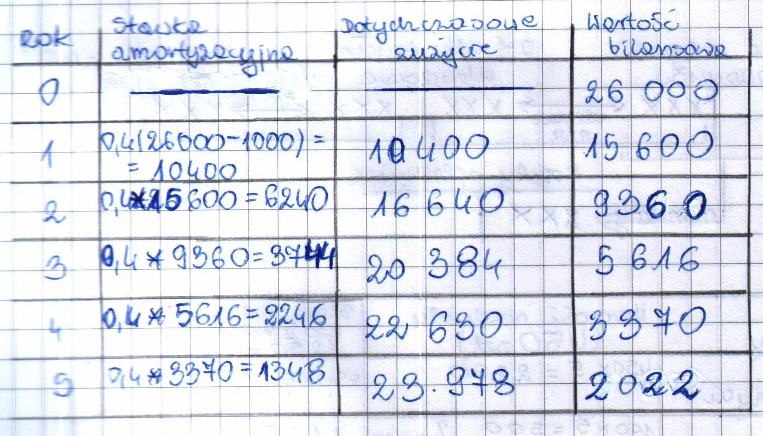 Rok Stawka amortyzacyjna Dotychczasowe zużycie Wartość bilansowa
0 — — 26 000
1 0,4(26000-1000) = = 10400 10 400 15 600
2 0,4*15600=6240 16 640 9360
3 0,4*9360=3744 20 384 5 616
4 0,4*5616=2246 22 630 3370
5 0,4*3370=1348 23.978 2022